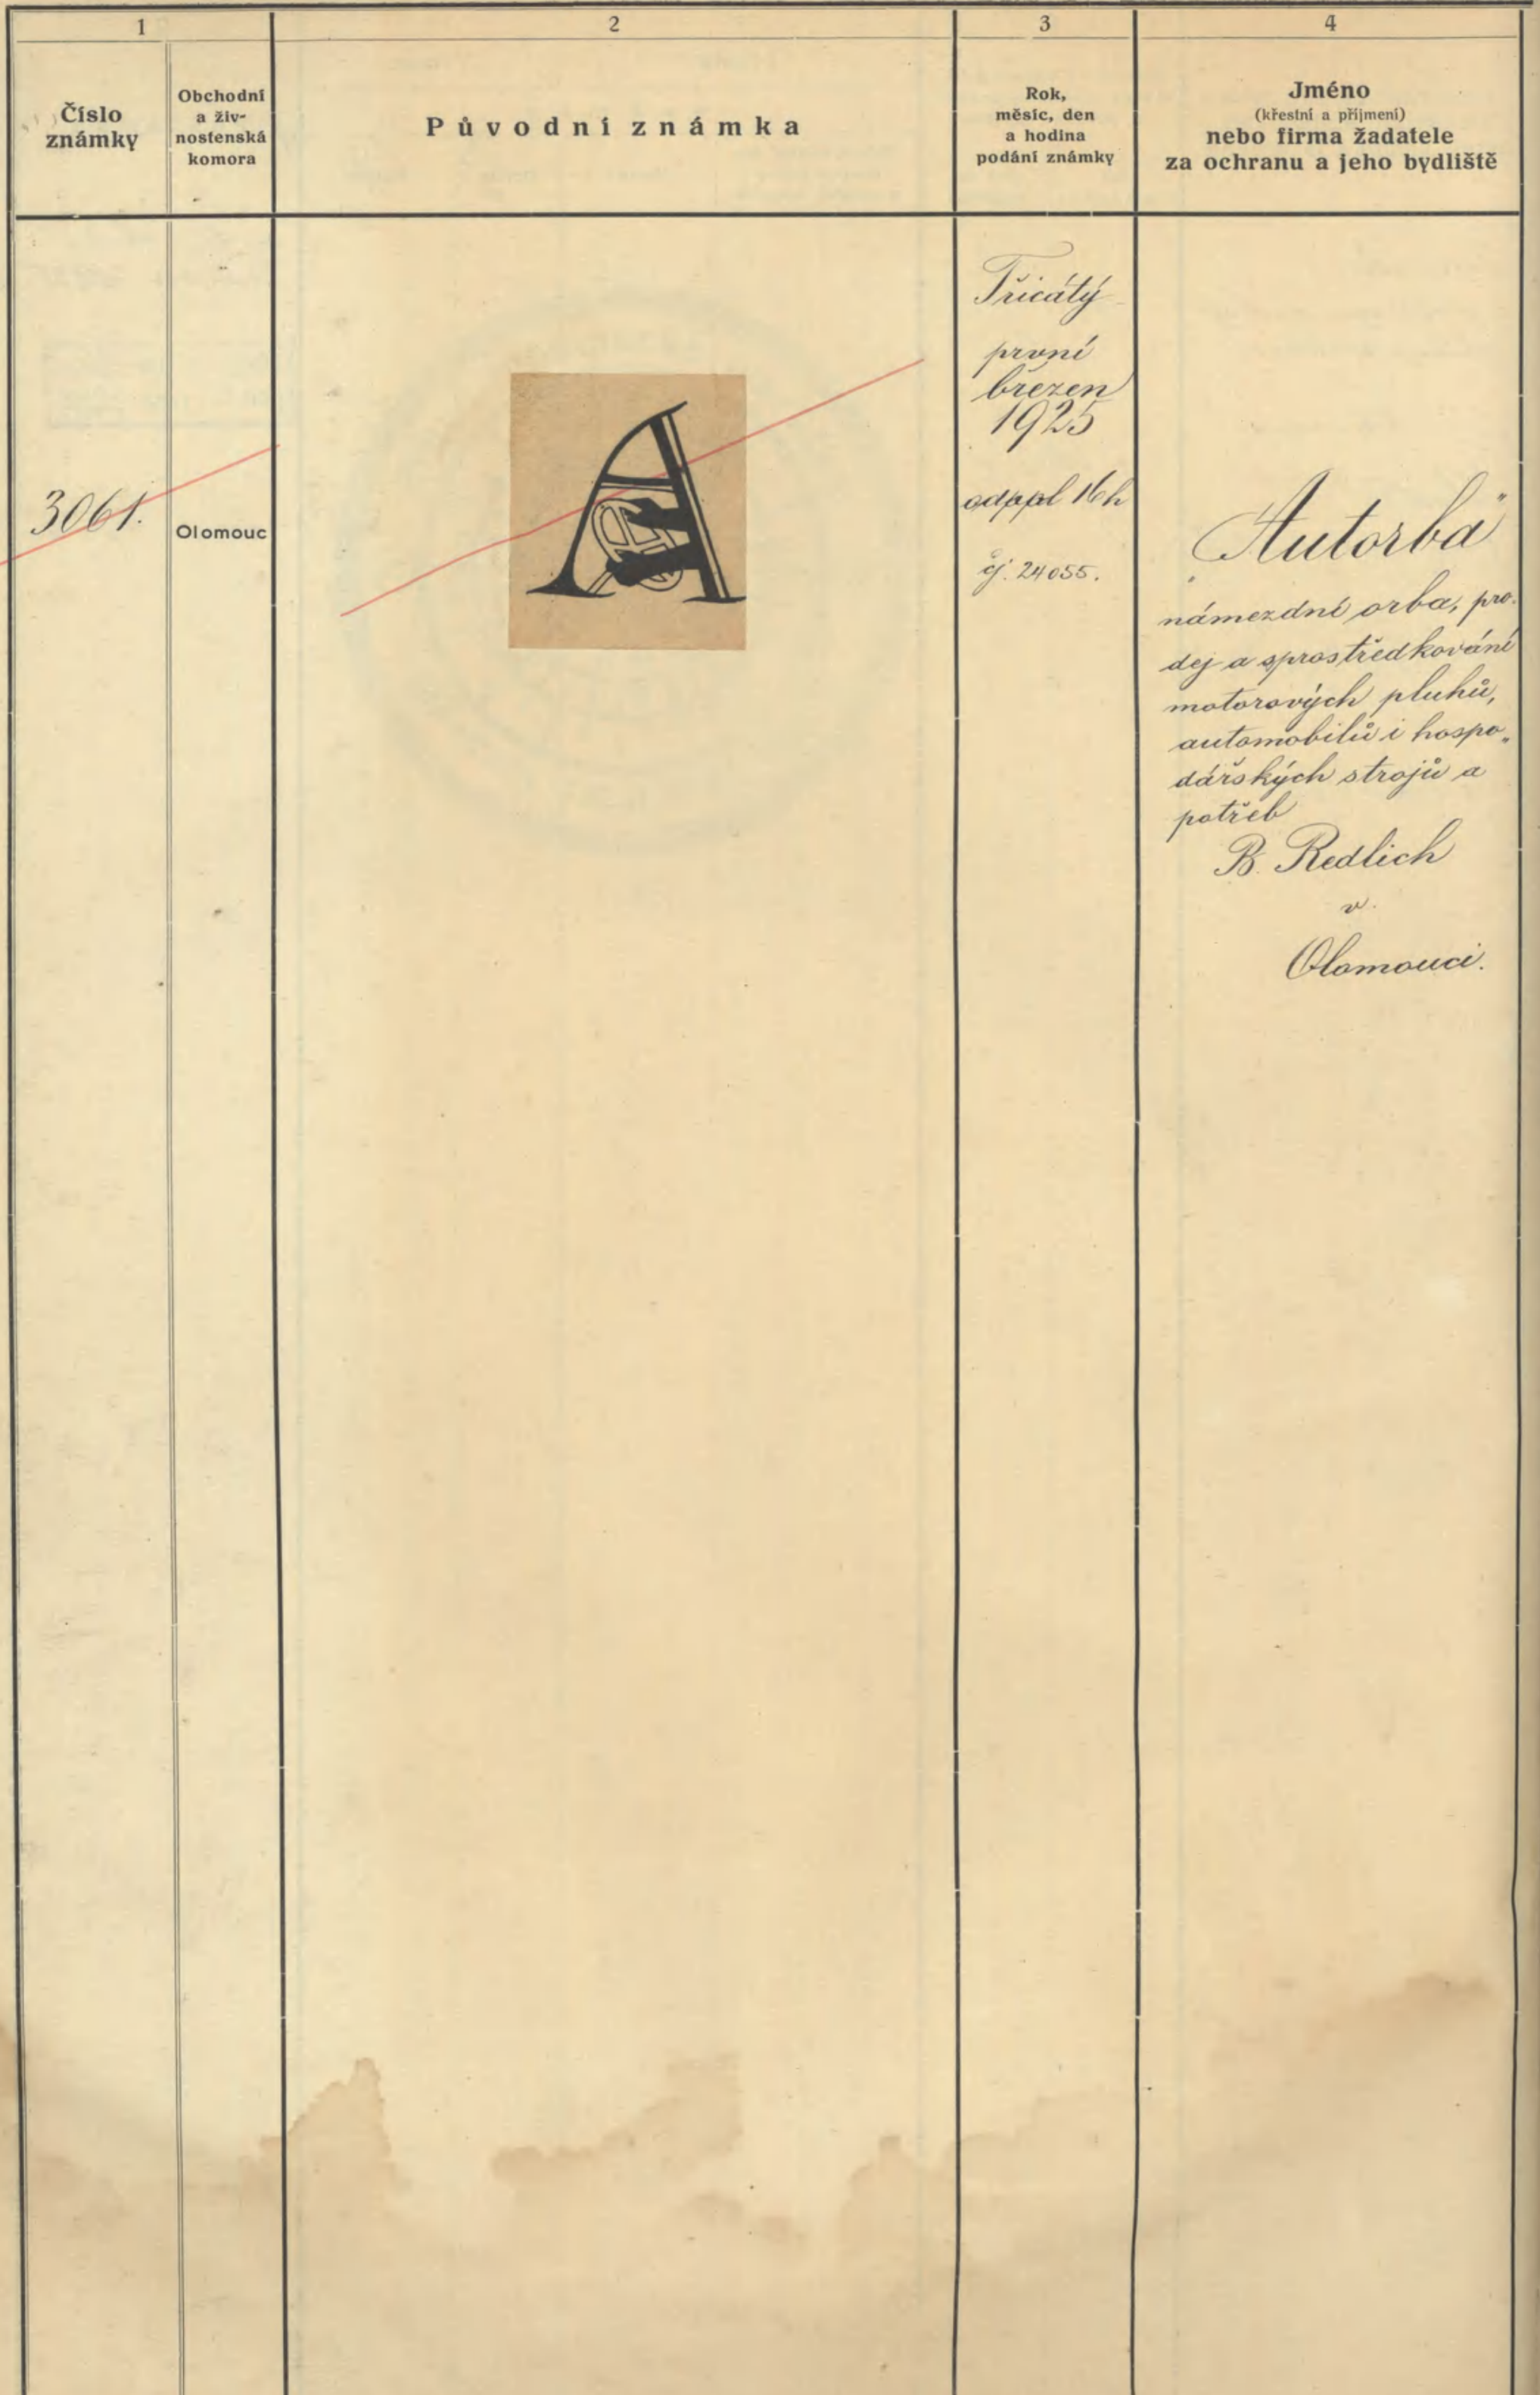 1
2
3
4
Číslo
známky
Obchodní
a živ-
nostenská
komora
Původní známka
Rok,
měsíc, den
a hodina
podání známky
Jméno
(křestní a příjmení)
nebo firma žadatele
za ochranu a jeho bydliště
3061.
Olomouc
A
Třicátý
první
březen
1925
odppol 16 h
čj. 24055.
„Autorba"
námezdní orba, pro-
dej a sprostředkování
motorových pluhů,
automobilů i hospo-
dářských strojů a
potřeb
B. Redlich
v
Olomouci.